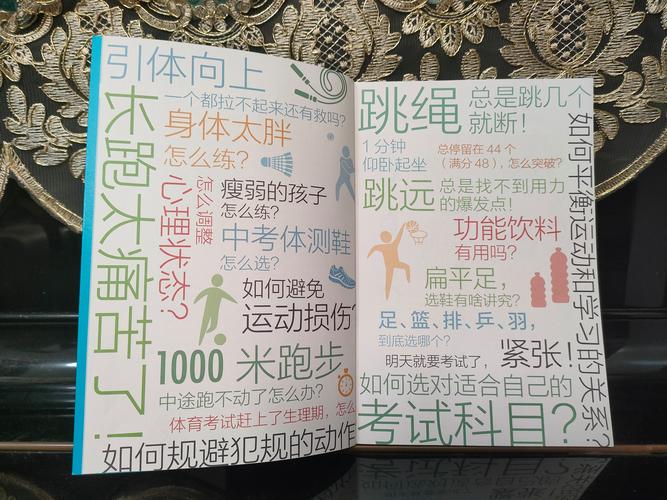 引体向上
一个都拉不起来还有救吗?
长跑太痛苦了!
身体太胖
怎么练?
怎么调整
心理状态?
瘦弱的孩子
怎么练?
中考体测鞋
怎么选?
如何避免
运动损伤?
1000 米跑步
中途跑不动了怎么办?
体育考试赶上了生理期,怎么
如何规避犯规的动作
跳绳
总是跳几个
就断!
1 分钟
仰卧起坐
总停留在 44 个
(满分 48),怎么突破?
跳远
总是找不到用力
的爆发点!
如何平衡运动和学习的关系?
功能饮料
有用吗?
扁平足,
选鞋有啥讲究?
足、篮、排、乒、羽,
到底选哪个?
明天就要考试了,
紧张!
如何选对适合自己的
考试科目?